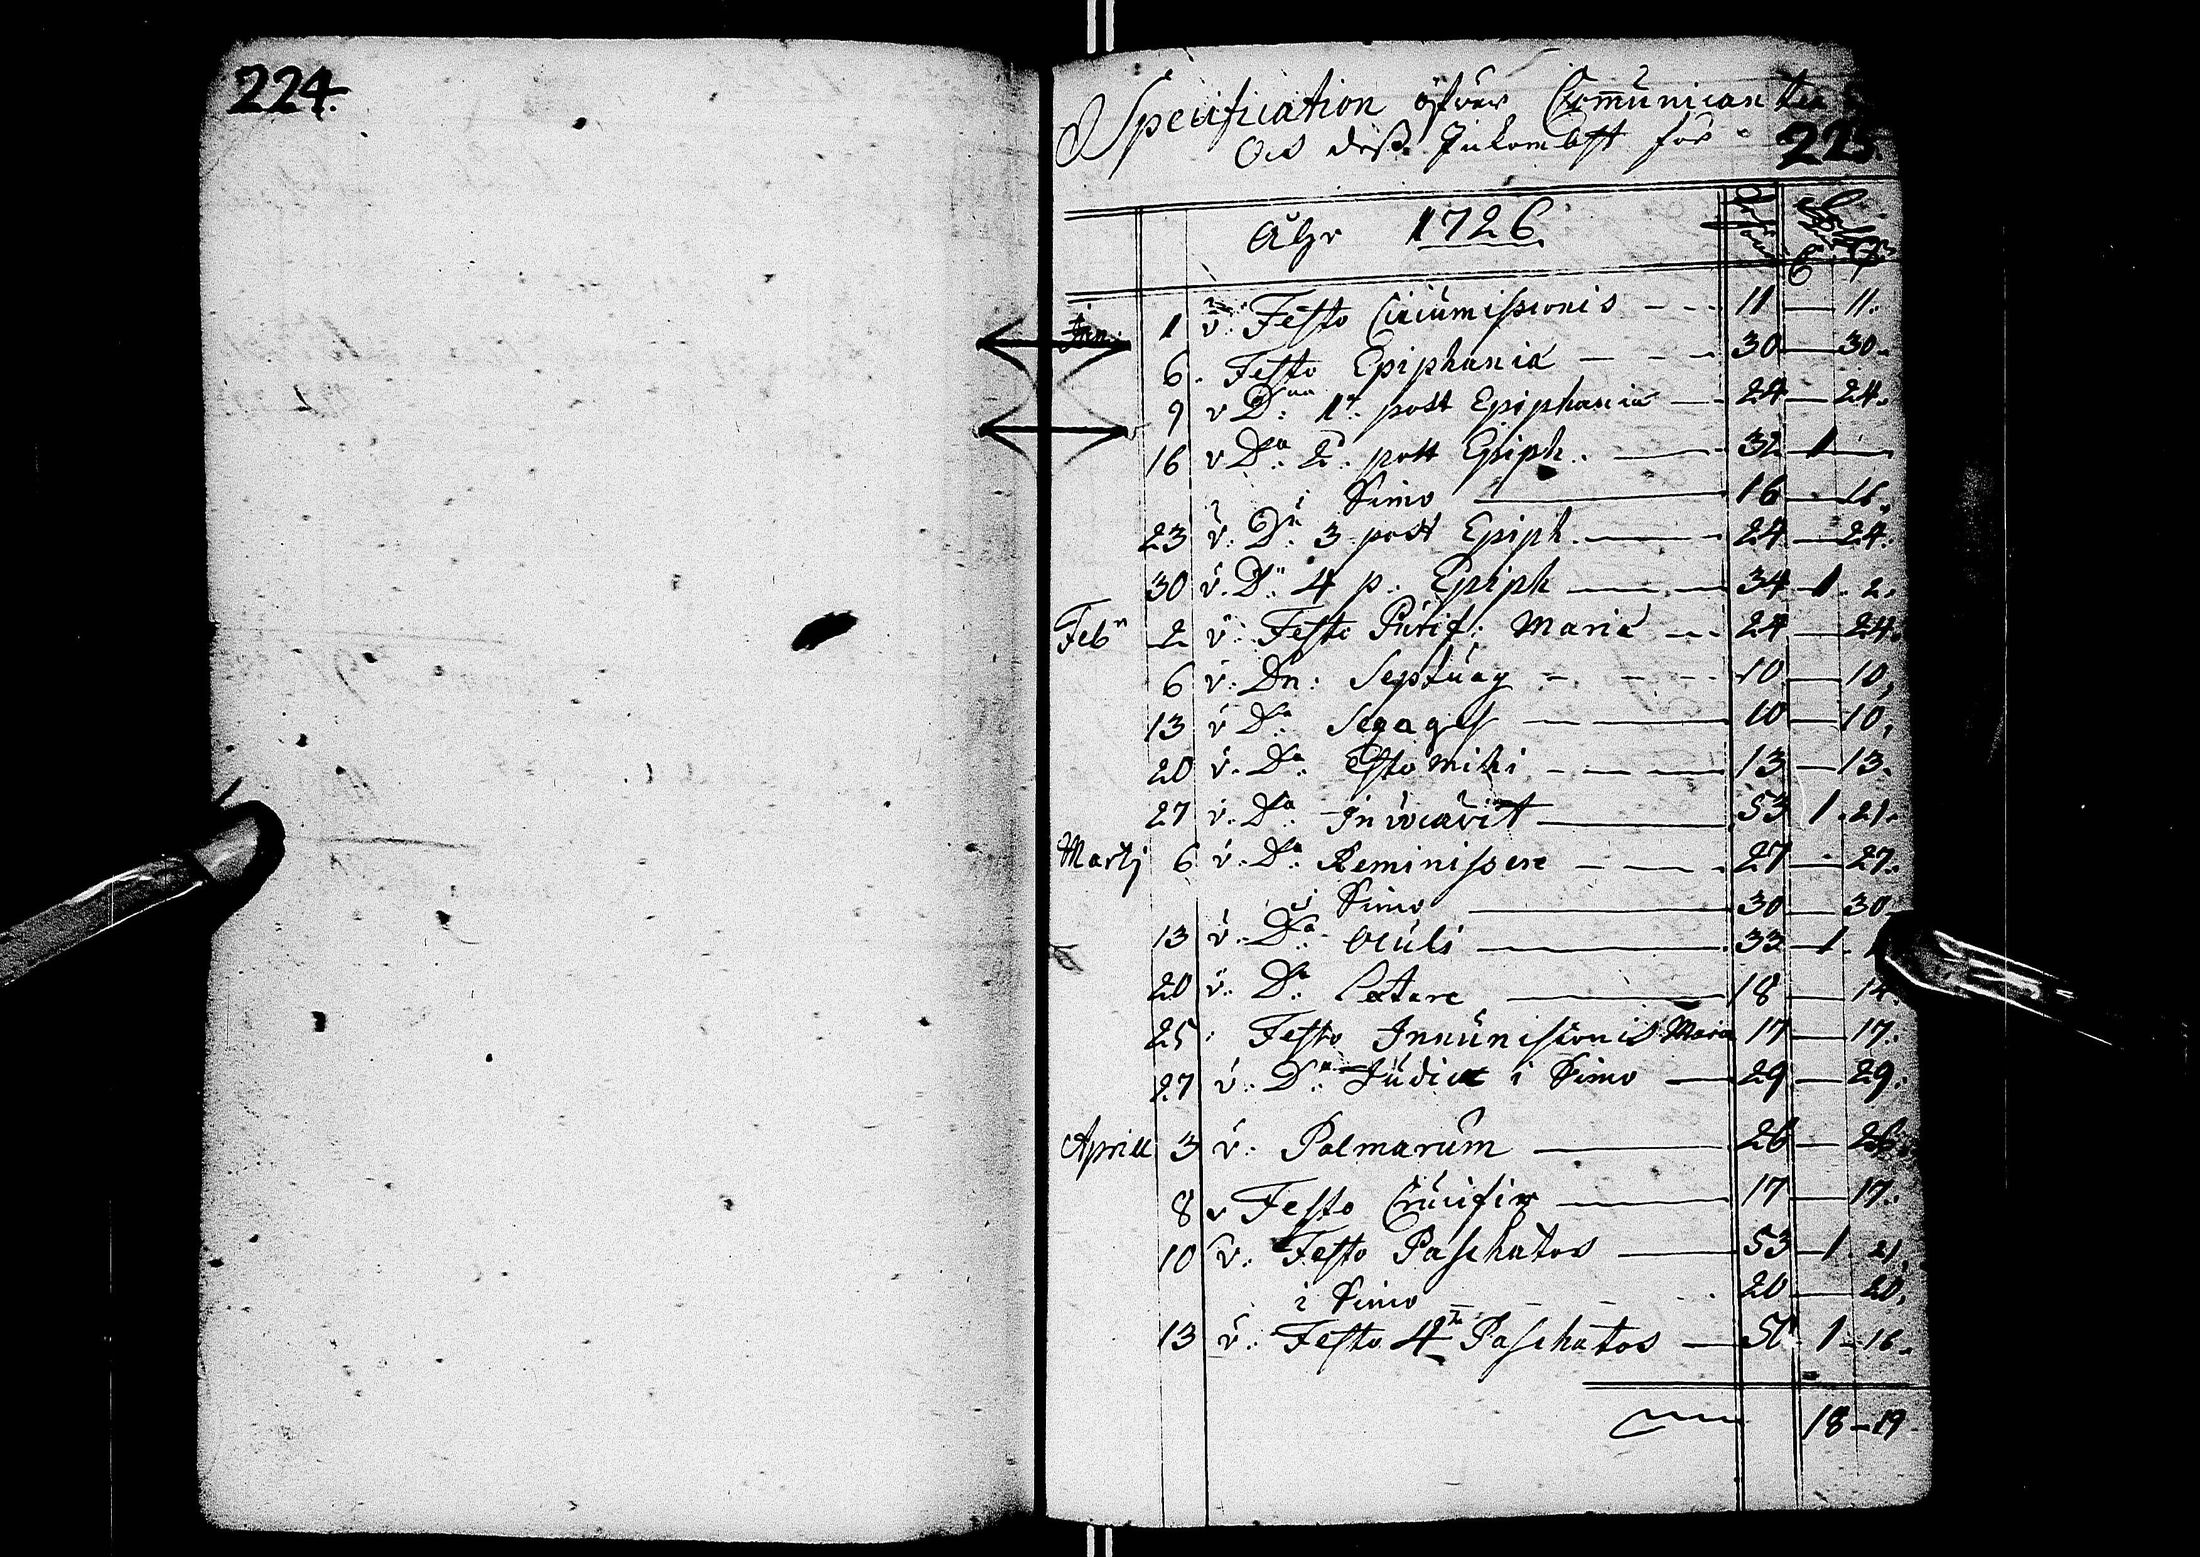 224.
Specification öfver Communican
Och deß Inkombst för
225.
Åhr 1726
Jan: 1 Festo Circumissionis 11 11.
6. Festo Epiphaniæ 30 30.
9 v Dna 1a post Epiphaniæ 24 24.
16 v Da 2. post Epiph. 32 1
i Kimo 16 16.
23 v. Da 3 post Epiph. 24 24.
30 v. Da 4 p. Epiph 34 1. 2.
Febr 2 v. Festo Purif: Mariæ 24 24.
6 v. Dn: Septuag 10 10,
13 v Da Sexages 10 10,
20 v. Da Esto mihi 13 13.
27 v. Da Invocavit 53 1. 21.
Martj 6 v. Da Reminissere 27 27.
i Kimo 30 30
13 v. Da Oculi 33 1.
20 v. Da Letare 18
25 Festo Annunisionis Maria 17 17.
27 v. Da Judica i Kimo 29 29.
Aprill 3 v. Palmarum 26 26.
8 v Festo Crucifix 17 17.
10 v. Festo Paschatos 53 1. 21.
i Kimo 20 20,
13 v. Festo 4 Paschatos 1 16.
18 - 19